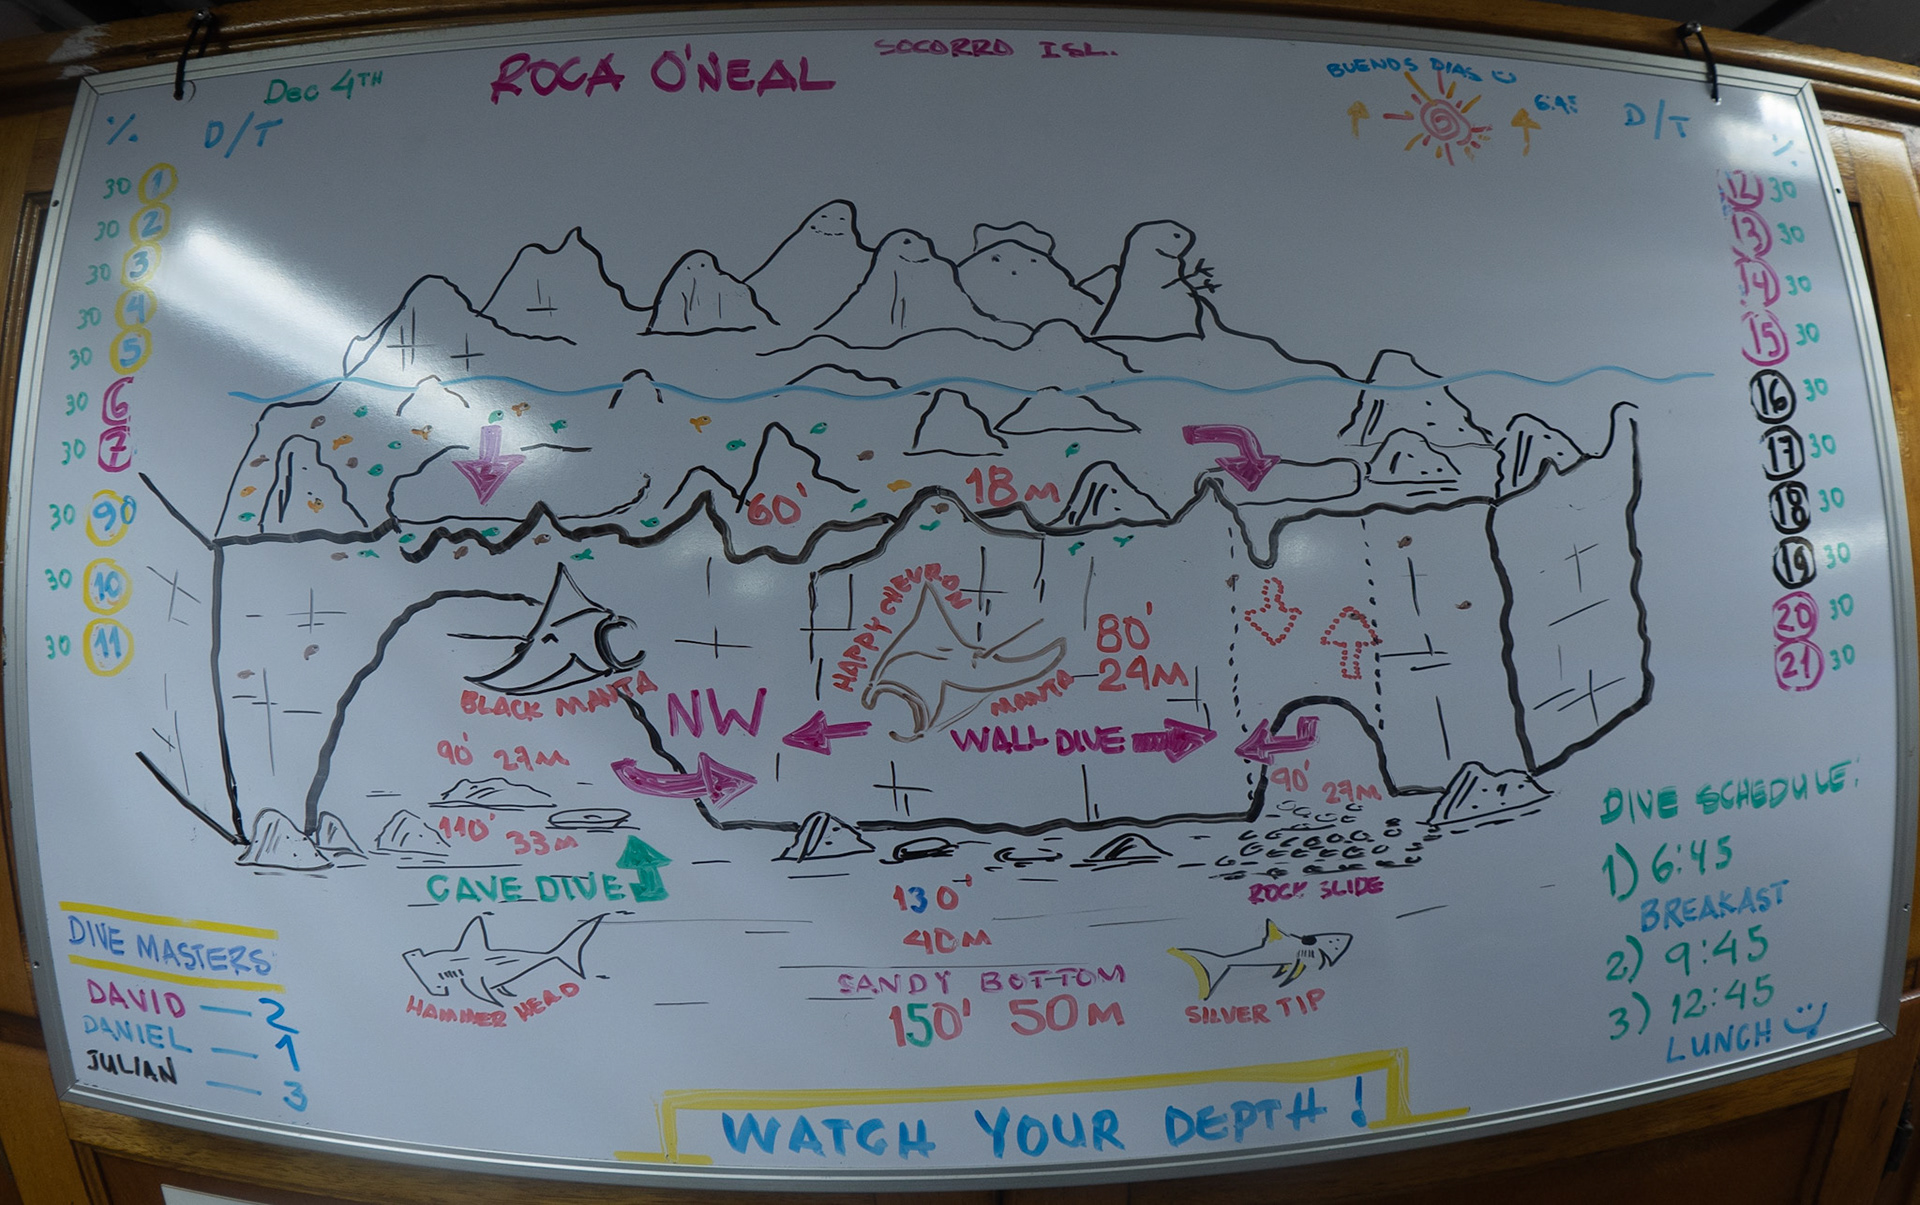 Dec 4TH
ROCA O'NEAL
SOCORRO ISL.
BUENOS DIAS
6:45
% D/T
D/T %
30 1
30 2
30 3
30 4
30 5
30 6
30 7
30 90
30 10
30 11
12 30
13 30
14 30
15 30
16 30
17 30
18 30
19 30
20 30
21 30
60' 18M
HAPPY CHEVRON
MANTA
80'
24M
BLACK MANTA
NW
WALL DIVE
90' 27M
90' 27M
110' 33M
CAVE DIVE
ROCK SLIDE
130'
40M
SANDY BOTTOM
150' 50M
HAMMER HEAD
SILVER TIP
DIVE MASTERS
DAVID — 2
DANIEL — 1
JULIAN — 3
DIVE SCHEDULE:
1) 6:45
BREAKAST
2) 9:45
3) 12:45
LUNCH
WATCH YOUR DEPTH!